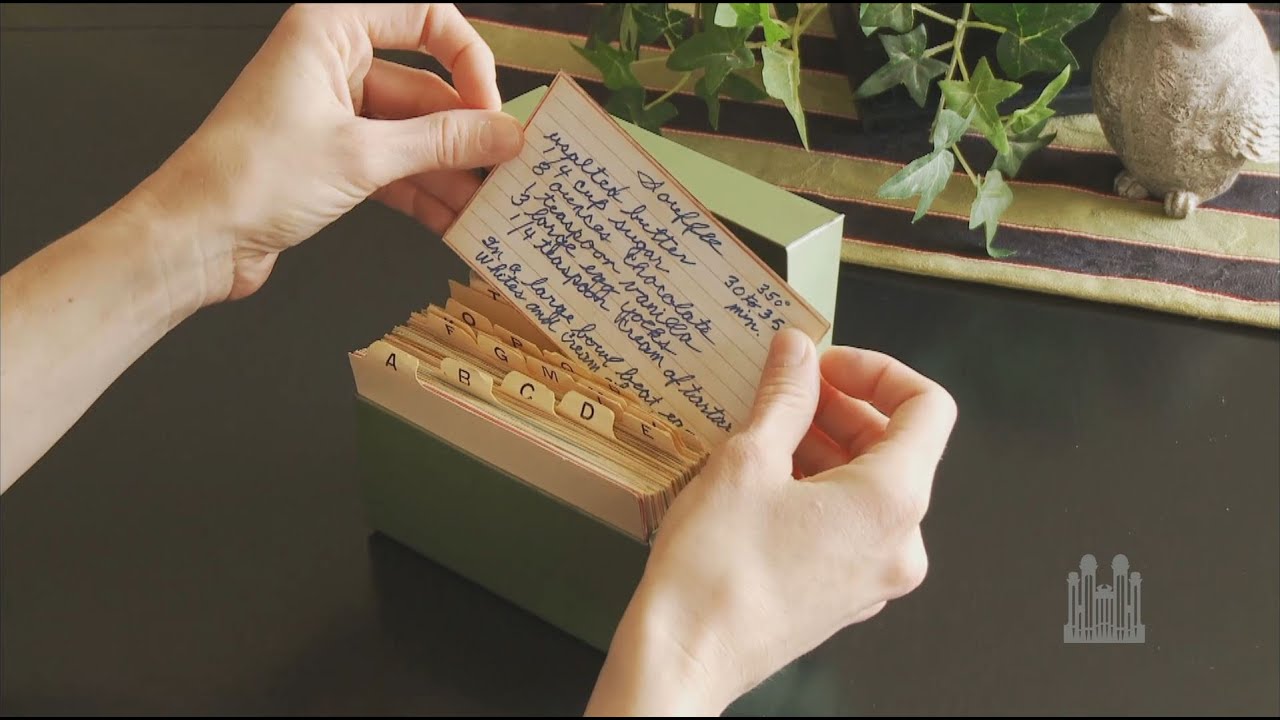 Souffle
350°
30 to 35
min.
unsalted butter
1/4 cup sugar
8 ounces chocolate
1 teaspoon vanilla
3 large egg yocks
1/4 teaspoon kream of tartar
In a large bowl beat en-
Whites and cream
A
B
C
D
E
F
G
M
O
P